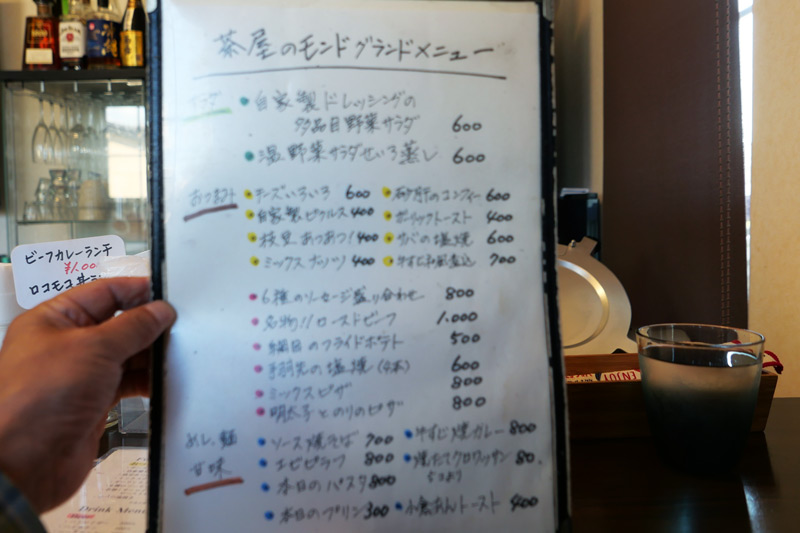 茶屋のモンドグランドメニュー
サラダ
自家製ドレッシングの
多品目野菜サラダ 600
温野菜サラダせいろ蒸し 600
おつまみ
チーズいろいろ 600
砂肝のコンフィー 600
自家製ピクルス 400
ガーリックトースト 400
枝豆あつあつ! 400
サバの塩焼 600
ミックスナッツ 400
牛すじ和風煮込 700
6種のソーセージ盛り合わせ 800
名物!!ローストビーフ 1.000
網目のフライドポテト 500
手羽先の塩焼(4本) 600
ミックスピザ 800
明太子とのりのピザ 800
めし、麺
甘味
ソース焼そば 700
牛すじ焼カレー 800
エビピラフ 800
焼たてクロワッサン 80.
5コより
本日のパスタ 800
本日のプリン 300
小倉あんトースト 400
ビーフカレーランチ
ロコモコ丼
Drink Menu
ENJOY